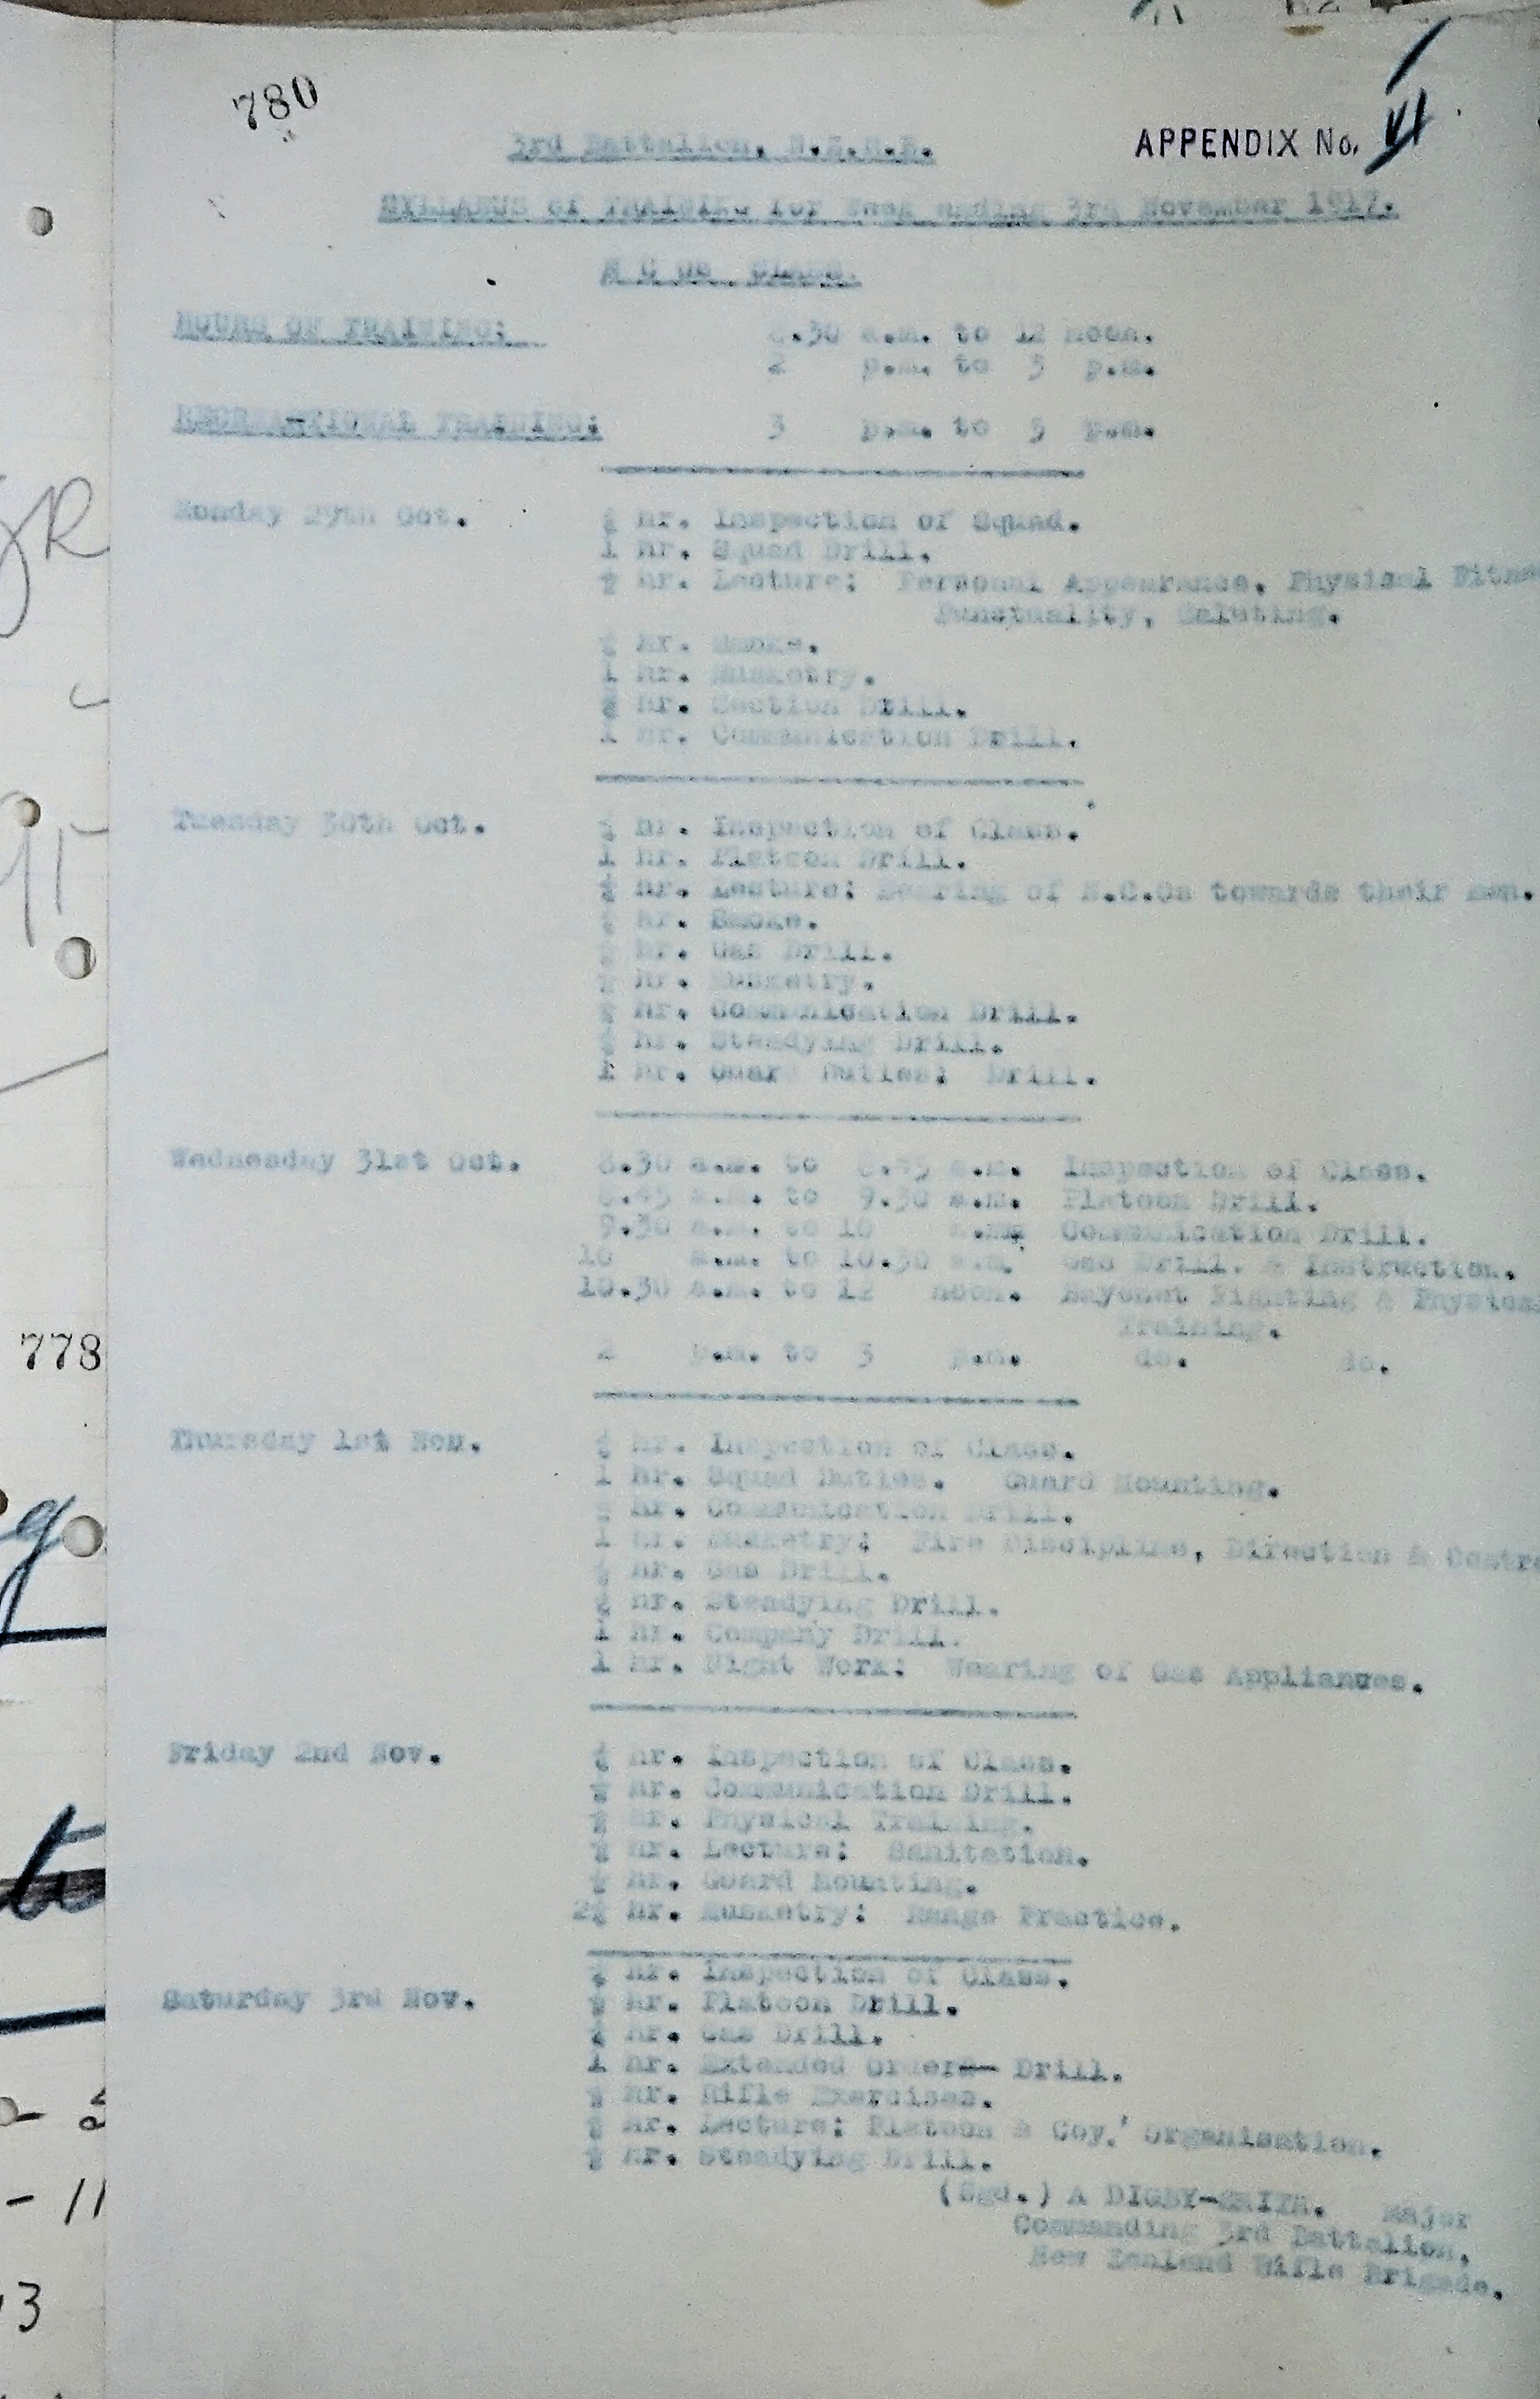 780
3rd Battalion, N.Z.R.B.
APPENDIX No. VI
SYLLABUS of TRAINING for Week ending 3rd November 1917.
N C Os CLASS.
HOURS OF TRAINING: 8.30 a.m. to 12 noon.
2 p.m. to 3 p.m.
RECREATIONAL TRAINING: 3 p.m. to 5 p.m.
Monday 29th Oct. hr. Inspection of Squad.
1 hr. Squad Drill.
hr. Lecture: Personal Appearance, Physical Fitne
Punctuality, Saluting.
hr. Smoke.
1 hr. Musketry.
hr. Section Drill.
1 hr. Communication Drill.
Tuesday 30th Oct. hr. Inspection of Class.
1 hr. Platoon Drill.
hr. Lecture: Bearing of N.C.Os towards their men.
hr. Smoke.
hr. Gas Drill.
hr. Musketry.
hr. Communication Drill.
hr. Steadying Drill.
1 hr. Guard Duties: Drill.
Wednesday 31st Oct. 8.30 a.m. to 8.45 a.m. Inspection of Class.
8.45 a.m. to 9.30 a.m. Platoon Drill.
9.30 a.m. to 10 a.m. Communication Drill.
10 a.m. to 10.30 a.m. Gas Drill. & Instruction.
10.30 a.m. to 12 noon. Bayonet Fighting & Physical
Training.
2 p.m. to 3 p.m. do. do.
778
Thursday 1st Nov. hr. Inspection of Class.
1 hr. Squad Duties. Guard Mounting.
hr. Communication Drill.
1 hr. Musketry: Fire Discipline, Direction & Contro
hr. Gas Drill.
hr. Steadying Drill.
1 hr. Company Drill.
1 hr. Night Work: Wearing of Gas Appliances.
Friday 2nd Nov. hr. Inspection of Class.
hr. Communication Drill.
hr. Physical Training.
hr. Lecture: Sanitation.
hr. Guard Mounting.
hr. Musketry: Range Practice.
hr. Inspection of Class.
Saturday 3rd Nov. hr. Platoon Drill.
hr. Gas Drill.
1 hr. Extended Order Drill.
hr. Rifle Exercises.
hr. Lecture: Platoon & Coy.' Organisation.
hr. Steadying Drill.
(Sgd.) A DIGBY-SMITH. Major
Commanding 3rd Battalion,
New Zealand Rifle Brigade.